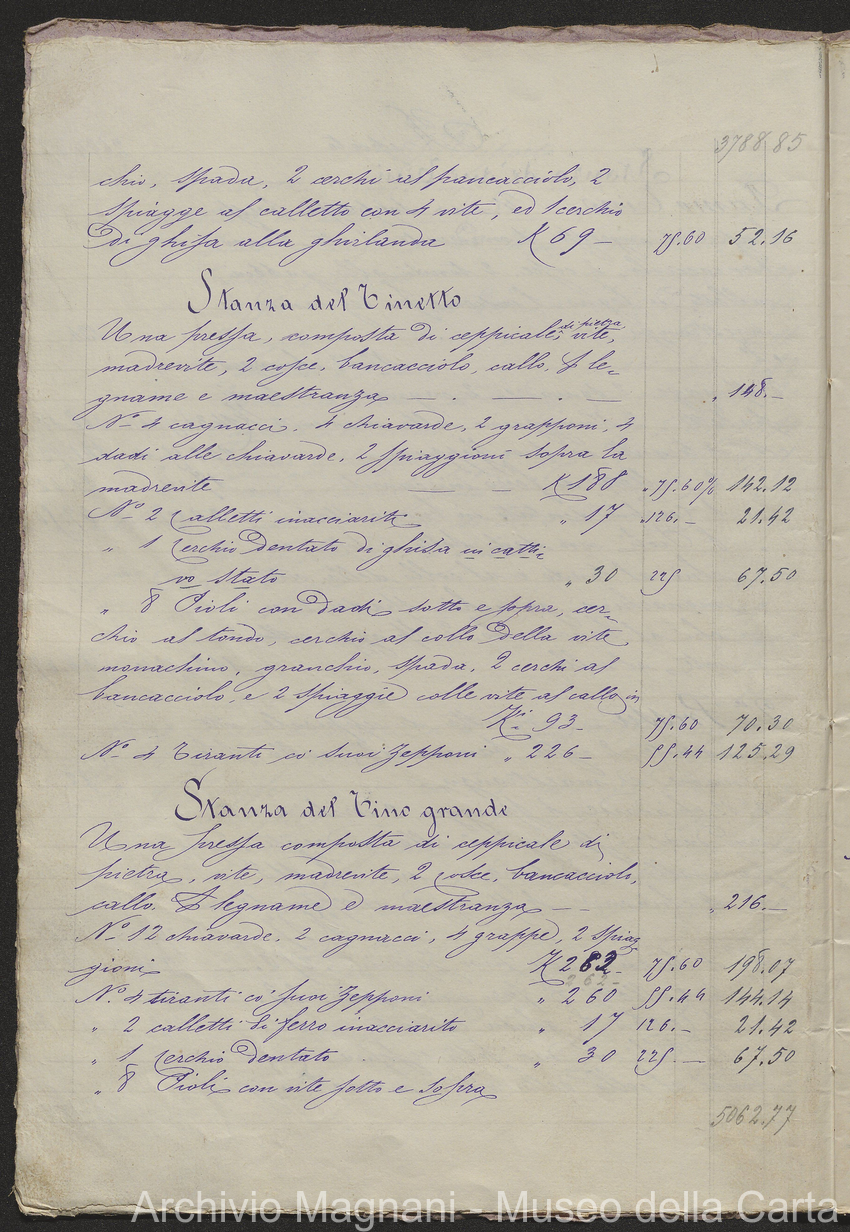 3788,85
chio, spada, 2 cerchi al pancacciolo, 2
spiagge al calletto con 4 vite, ed 1 cerchio
di ghisa alla ghirlanda K 69 – 75.60 52.16
Stanza del Tinetto
Una pressa, composta di ceppicale, di pietra vite,
madrevite, 2 cosce, bancacciolo, callo. P le-
gname e maestranza — . — . — „ 148.–
N.º 4 cagnacci. 4 chiavarde, 2 grapponi, 4
dadi alle chiavarde, 2 spiaggioni sopra la
madrevite — — K 188 „ 75.60% 142.12
N.º 2 Calletti inacciariti „ 17 „ 126.– 21.42
„ 1 Cerchio dentato di ghisa in catti-
vo stato „ 30 225 67.50
„ 8 Pioli con dadi sotto e sopra, cer-
chio al tondo, cerchio al collo della vite
monachino, granchio, spada, 2 cerchi al
bancacciolo, e 2 spiaggie colle vite al callo in
Ki 93– 75.60 70.30
N.º 4 Tiranti co' suoi Zepponi „ 226 – 55.44 125.29
Stanza del Tino grande
Una pressa composta di ceppicale di
pietra, vite, madrevite, 2 cosce, bancacciolo,
callo. P legname e maestranza – – „ 216.–
N.º 12 chiavarde, 2 cagnacci, 4 grappe, 2 spiag-
gioni K 262– 75.60 198.07
262–
N.º 4 tiranti co' suoi Zepponi „ 260 55.44 144.14
„ 2 calletti di ferro inacciarito „ 17 126.– 21.42
„ 1 Cerchio dentato „ 30 225.– 67.50
„ 8 Pioli con vite sotto e sopra
5062.77
Archivio Magnani - Museo della Carta